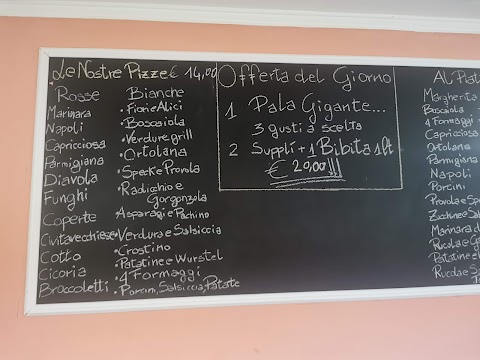 Le Nostre Pizze € 14,00
Rosse
Marinara
Napoli
Capricciosa
Parmigiana
Diavola
Funghi
Coperte
Civitavecchiese
Cotto
Cicoria
Broccoletti
Bianche
• Fiori e Alici
• Boscaiola
• Verdure grill
• Ortolana
• Speck e Provola
• Radicchio e
Gorgonzola
Asparagi e Pachino
• Verdura e Salsiccia
• Crostino
• Patatine e Wurstel
• 4 Formaggi
• Porcini, Salsiccia, Patate
Offerta del Giorno
1 Pala Gigante...
3 gusti a scelta
2 Supplì + 1 Bibita 1lt
€ 20,00!!!
Al Piat
Margherita
Boscaiola
4 Formaggi
Capricciosa
Ortolana
Parmigiana
Napoli
Porcini
Provola e Sp
Zucchine e Sa
Marinara
Rucola e G
Patatine e